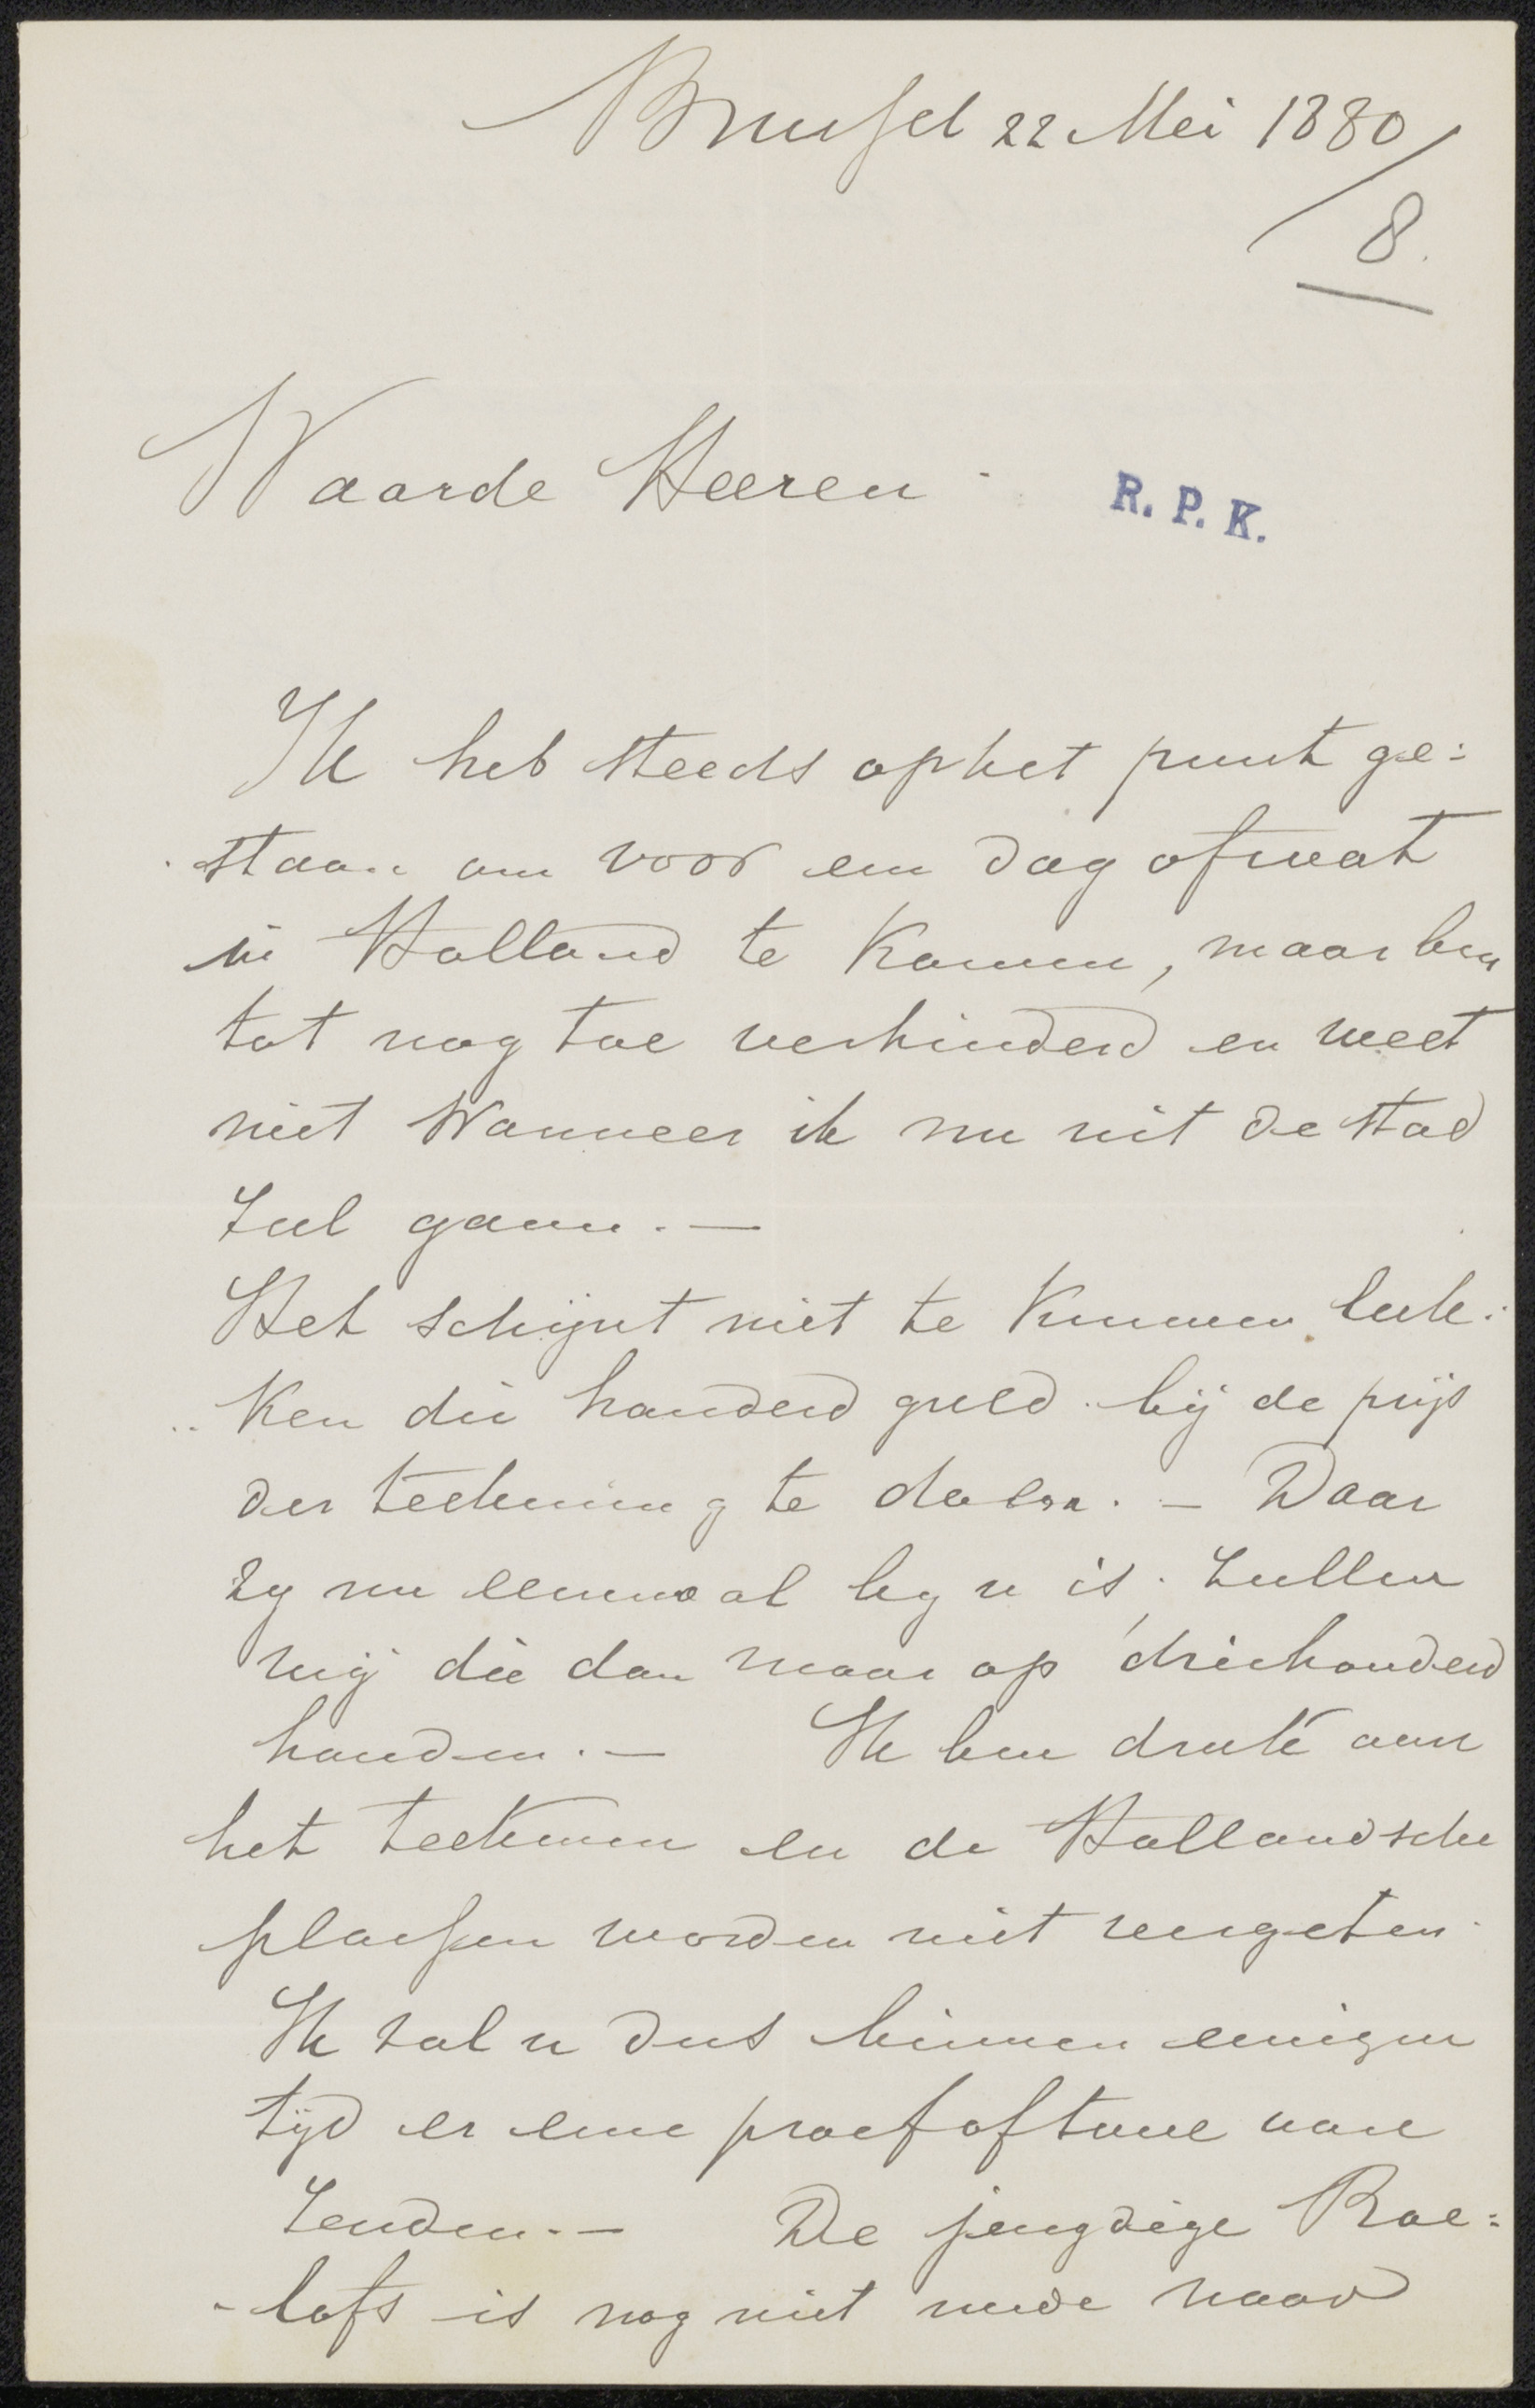 Brussel 22 Mei 1880
8.
Waarde Heeren
R. P. K.
Ik heb steeds op het punt ge=
staan om voor een dag of wat
in Holland te komen, maar ben
tot nog toe verhinderd en weet
niet wanneer ik nu uit de stad
zul gaan. —
Het schijnt niet te kunnen luk=
ken die honderd guld. bij de prijs
der teekening te doen. — Daar
zy nu eenmaal by u is, zullen
wij die dan maar op driehonderd
houden. — Ik ben druk aan
het teekenen en de Hollandsche
plassen worden niet vergeten.
Ik zal u dus binnen eenigen
tijd er eene proef of twee van
zenden. — De jeugdige Roe=
lofs is nog niet mede naar